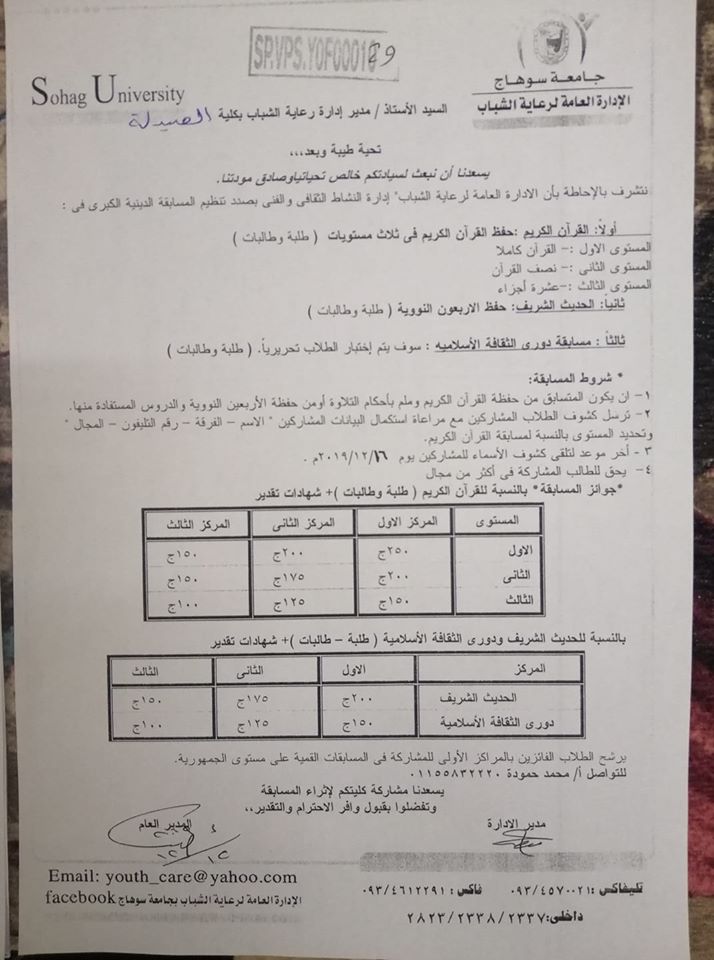 SP.VPS.Y0F00010
29
جامعة سوهاج
الإدارة العامة لرعاية الشباب
Sohag University
السيد الأستاذ / مدير إدارة رعاية الشباب بكلية الصيدلة
تحية طيبة وبعد،،،
يسعدنا أن نبعث لسيادتكم خالص تحياتنا وصادق مودتنا.
نتشرف بالإحاطة بأن الادارة العامة لرعاية الشباب" إدارة النشاط الثقافى والفنى بصدد تنظيم المسابقة الدينية الكبرى فى :
أولاً: القرآن الكريم :حفظ القرآن الكريم فى ثلاث مستويات ( طلبة وطالبات )
المستوى الاول :- القرآن كاملا
المستوى الثانى :- نصف القرآن
المستوى الثالث :-عشرة أجزاء
ثانياً: الحديث الشريف: حفظ الاربعون النووية ( طلبة وطالبات )
ثالثاً : مسابقة دورى الثقافة الأسلاميه : سوف يتم إختبار الطلاب تحريرياً. ( طلبة وطالبات )
* شروط المسابقة:
١- ان يكون المتسابق من حفظة القرآن الكريم وملم بأحكام التلاوة أومن حفظة الأربعين النووية والدروس المستفادة منها.
٢- ترسل كشوف الطلاب المشاركين مع مراعاة استكمال البيانات المشاركين " الاسم – الفرقة – رقم التليفون – المجال "
وتحديد المستوى بالنسبة لمسابقة القرآن الكريم.
٣ - أخر موعد لتلقى كشوف الأسماء للمشاركين يوم ٢٠١٩/١٢/١٦م .
٤- يحق للطالب المشاركة فى أكثر من مجال
*جوائز المسابقة* بالنسبة للقرآن الكريم ( طلبة وطالبات )+ شهادات تقدير
المستوى المركز الاول المركز الثانى المركز الثالث
الاول ٢٥٠ج ٢٠٠ج ١٥٠ج
الثانى ٢٠٠ج ١٧٥ج ١٥٠ج
الثالث ١٥٠ج ١٢٥ج ١٠٠ج
بالنسبة للحديث الشريف ودورى الثقافة الأسلامية ( طلبة – طالبات )+ شهادات تقدير
المركز الاول الثانى الثالث
الحديث الشريف ٢٠٠ج ١٧٥ج ١٥٠ج
دورى الثقافة الأسلامية ١٥٠ج ١٢٥ج ١٠٠ج
يرشح الطلاب الفائزين بالمراكز الأولى للمشاركة فى المسابقات القمية على مستوى الجمهورية.
للتواصل أ/ محمد حمودة ٠١١٥٥٨٣٢٢٢٠
يسعدنا مشاركة كليتكم لإثراء المسابقة
وتفضلوا بقبول وافر الاحترام والتقدير،،
مدير الادارة
المدير العام
تليفاكس :٠٩٣/٤٥٧٠٠٢١ فاكس : ٠٩٣/٤٦١٢٢٩١
Email: youth_care@yahoo.com
الإدارة العامة لرعاية الشباب بجامعة سوهاج facebook
داخلى:٢٨٢٣/٢٣٣٨/٢٣٣٧